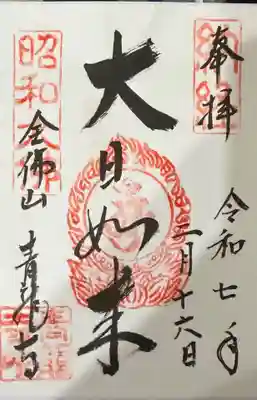 納経
奉拝
令和七年
二月十六日
大日如来
昭和大佛
全佛山
青龍寺